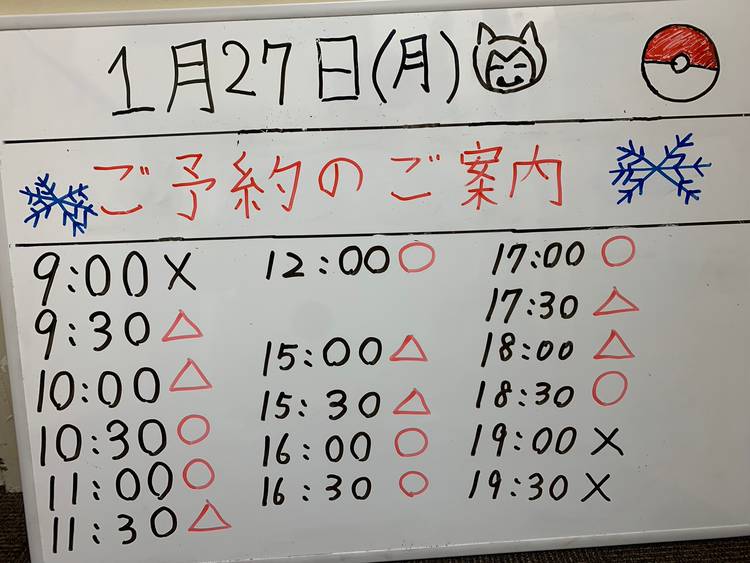 1月27日(月)
ご予約のご案内
9:00 ×
9:30 △
10:00 △
10:30 ○
11:00 ○
11:30 △
12:00 ○
15:00 △
15:30 △
16:00 ○
16:30 ○
17:00 ○
17:30 △
18:00 △
18:30 ○
19:00 ×
19:30 ×